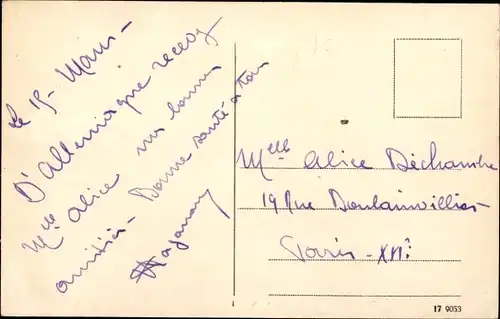 Le 15 - Mars -
D'Allemagne recevez
Mlle Alice mes bonnes
amitiés - Bonne santé à tous
Melle Alice Déchambre
19 Rue Boulainvilliers
Paris - XVIe
17 9053